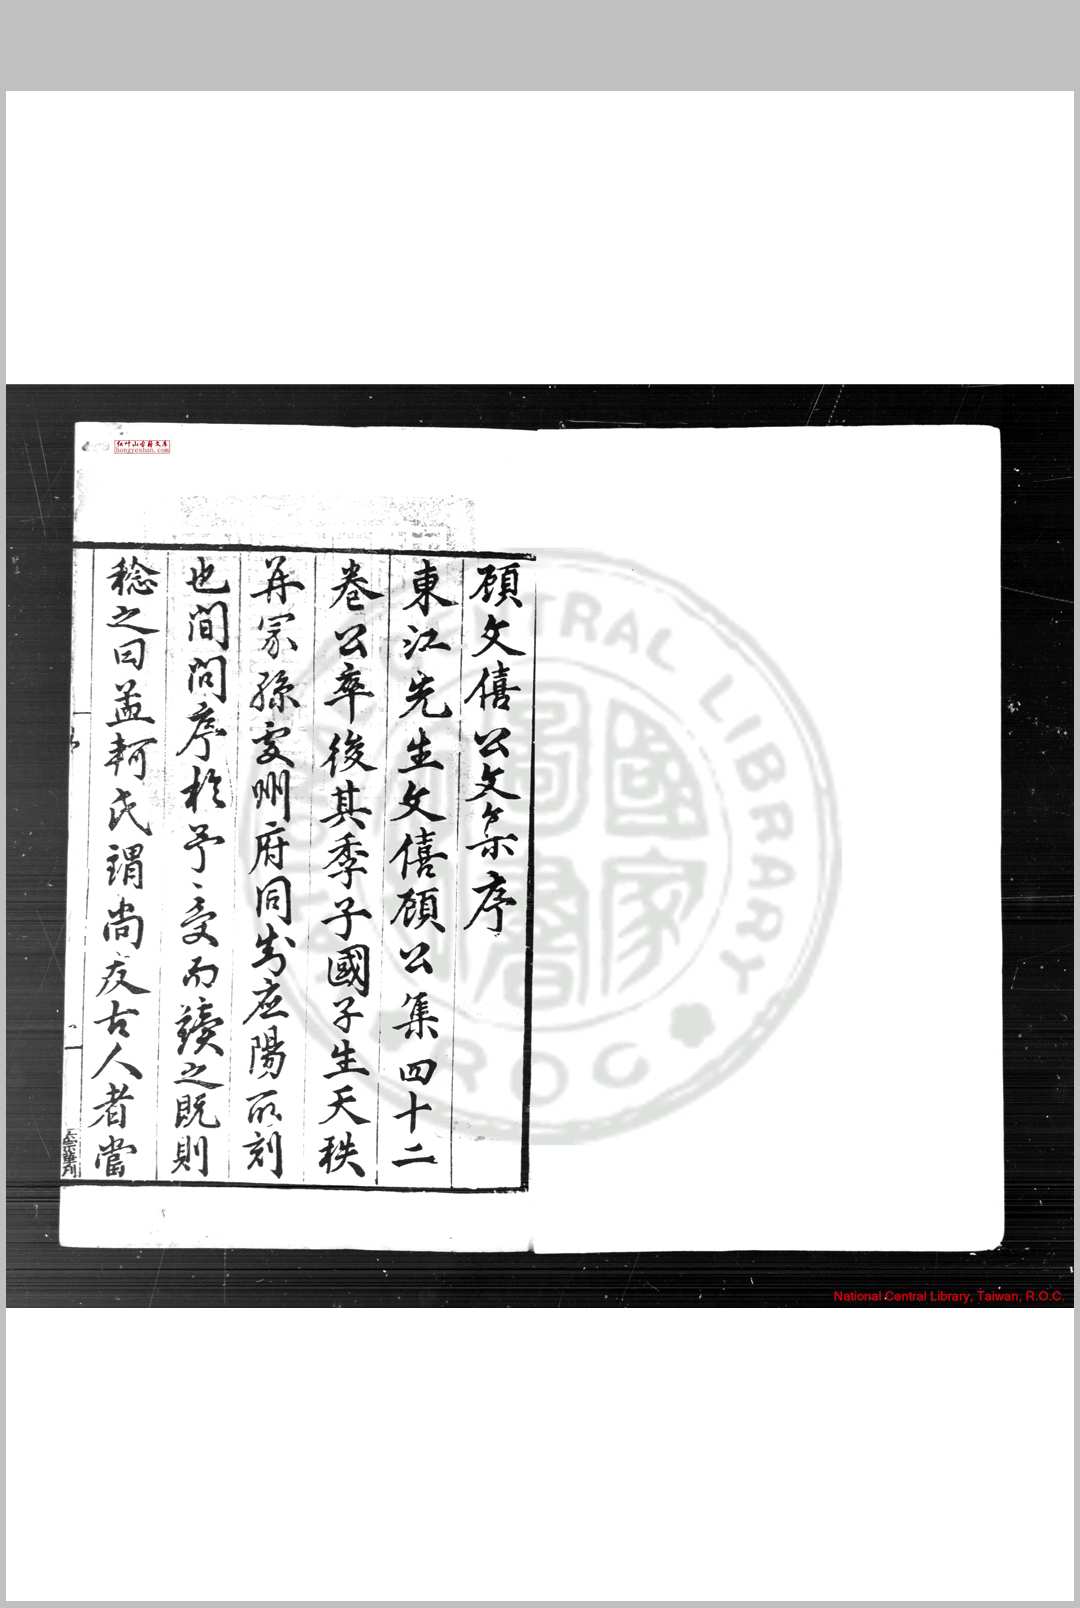 顧文僖公文集序
東江先生文僖顧公集四十二
卷公卒後其季子國子生天秩
并冢孫處州府同知應陽所刻
也間問序於予予受而讀之既則
稔之曰孟軻氏謂尚友古人者當
序
红叶山古籍文库
hongyeshan.com
CENTRAL LIBRARY
R.O.C.
國家圖書
National Central Library, Taiwan, R.O.C.